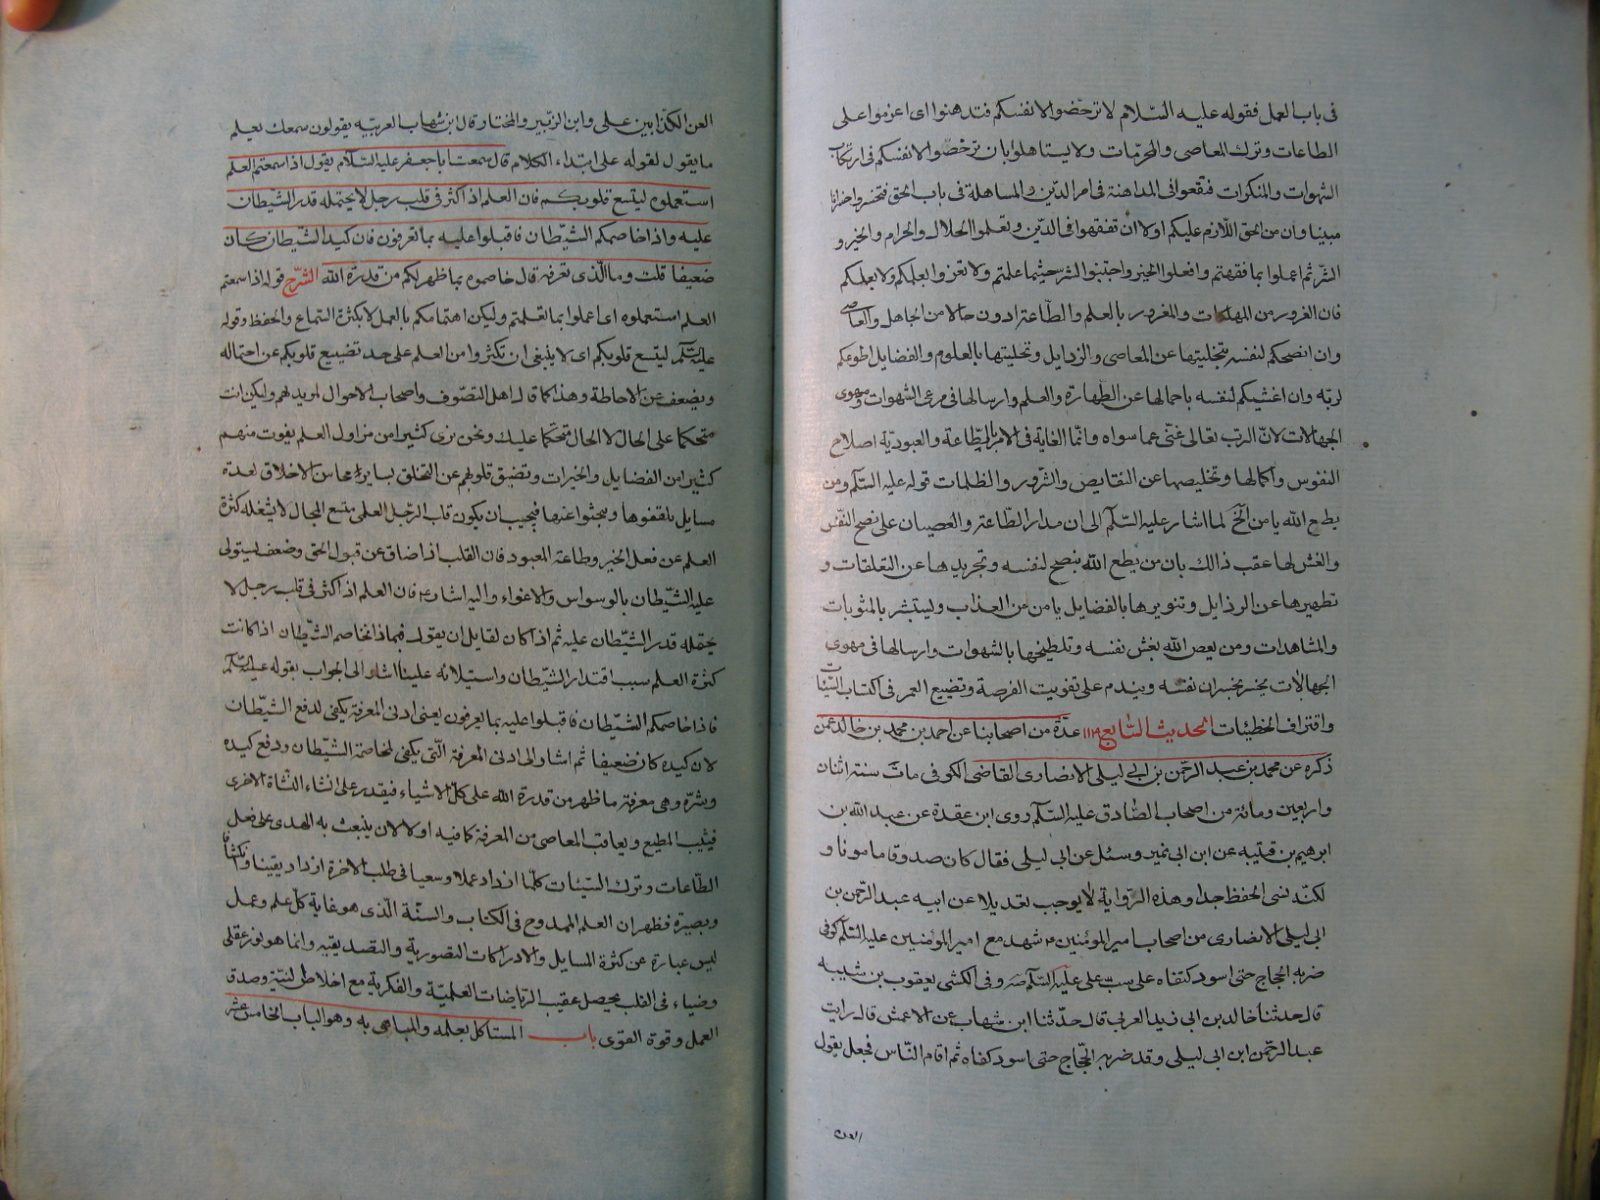 فى باب العمل فقوله عليه السّلام لا ترخّصوا لانفسكم فتدهنوا اى اعزموا على
الطاعات وترك المعاصى والمحرّمات ولا يستاهلوا بان ترخّصوا لانفسكم فى ارتكاب
الشهوات والمنكرات فتقعوا فى المداهنة فى امر الدّين والمساهلة فى باب الحق فتخسروا خسرانا
مبينا وان من الحق اللّازم عليكم اولا انّ تفقهوا فى الدّين وتعلموا الحلال والحرام والخير و
الشّر ثم اعملوا بما فقهتم وافعلوا الخير واجتنبوا الشر حيثما علمتم ولا تغزوا بعلمكم ولا بعملكم
فان الغرور من المهلكات والمغرور بالعلم والطّاعة ادون حالا من الجاهل والعاصى
وان انصحكم لنفسه بتخليتها عن المعاصى والرذايل وتحليتها بالعلوم والفضايل اطوعكم
لربّه وان اغشكم لنفسه باحمالها عن الطّهارة والعلم وارسالها فى مرعى الشهوات ومهوى
الجهالات لانّ الرب تعالى غنّى عما سواه وانّما الغاية فى الامر بالطّاعة والعبوديّة اصلاح
النفوس واكمالها وتخليصها عن النقايص والشّرور والظلمات قوله عليه السّلم ومن
يطع الله يامن الخ لما اشار عليه السّلم الى ان مدار الطّاعة والعصيان على نصح النّفس
والغش لها عقب ذالك بان من يطع الله ينصح لنفسه وتجريدها عن التعلقات و
تطهيرها عن الرذايل وتنويرها بالفضايل يامن من العذاب وليتبشر بالمثوبات
والمشاهدات ومن يعص الله بغش نفسه وتلطيخها بالشهوات وارسالها فى مهوى
الجهالات يخسر بخسران نفسه ويندم على تفويت الفرصة وتضييع العمر فى اكتساب السّيئات
واقتراف الخطيئات الحديث السّابع ١١٣ عدّة من اصحابنا عن احمد بن محمد بن خالد عمن
ذكره عن محمد بن عبد الرحّمن بن ابى ليلى الانصارى القاضى الكوفى مات سنة اثنان
واربعين ومائة من اصحاب الصّادق عليه السّلم روى ابن عقدة عن عبد الله بن
ابرهيم بن قتيبه عن ابن ابى نمير وسئل عن ابى ليلى فقال كان صدوقا مامونا و
لكنّه نسى الحفظ جدا وهذه الرّواية لا يوجب تعديلا عن ابيه عبد الرّحمن بن
ابى ليلى الانصارى من اصحاب امير المؤمنين ع شهد مع امير المؤمنين عليه السّلم كوفى
ضربه الحجاج حتى اسود كتفاه على سبّ على عليه السّلم صه وفى الكشى يعقوب بن شيبه
قال حدثنا خالد بن ابى زيد العربى قال حدّثنا ابن شهاب عن الاعمش قال رايت
عبد الرحّمن ابن ابى ليلى وقد ضربه الحّجاج حتى اسود كفاه ثم اقام النّاس فجعل يقول
العن
العن الكذّابين على وابن الزبّير والمختار قال ابن شهاب العربيّه يقولون سمعك يعلم
ما يقول لقوله على ابتداء الكلام قال سمعت ابا جعفر عليه السّلام يقول اذا سمعتم العلم
استعملوه ليتّسع قلوبكم فان العلم اذ اكثر فى قلب رجل لا يحتمله قدر الشّيطان
عليه واذا خاصمكم الشّيطان فاقبلوا عليه بما تعرفون فان كيد الشّيطان كان
ضعيفا قلت وما الّذى نعرفه قال خاصموه بما ظهر لكم من قدرة الله الشرّح قوله اذا سمعتم
العلم استعملوه اى اعملوا بما تعلمتم وليكن اهتمامكم بالعمل لا بكثرة السّماع والحفظ وقوله
عليه السّلم ليتسع قلوبكم اى لا ينبغى ان تكثروا من العلم على حد تضييع قلوبكم عن احتماله
ويضعف عن الاحاطة وهذا كما قال اهل التصّوف واصحاب الاحوال لمريدهم وليكن انت
متحكما على الحال لا الحال متحكما عليك ونحن نرى كثيرا من مزاول العلم يفوت منهم
كثيرا من الفضايل والخيرات وتضيق قلوبهم عن التخلق بساير محاسن الاخلاق لعدة
مسايل يلقفوها ويبحثوا عنها فيجب ان يكون قلب الرّجل العلمى متسع المجال لا يشغله كثرة
العلم عن فعل الخير وطاعة المعبود فان القلب اذا ضاق عن قبول الحق وضعف ليستولى
عليه الشّيطان بالوسواس والاغواء واليه اشار ع فان العلم اذ اكثر فى قلب رجل لا
يحتمله قدر الشّيطان عليه ثم اذ كان لقايل ان يقول فبماذا نخاصم الشّيطان اذ كانت
كثرة العلم سبب اقتدار الشّيطان واستيلائه علينا اشار الى الجواب بقوله عليه السّلم
فاذا خاصمكم الشّيطان فاقبلوا عليه بما يعرفون يعنى ادنى المعرفة يكفى لدفع الشّيطان
لان كيده كان ضعيفا ثم اشار الى ادنى المعرفة الّتى يكفى لمخاصمة الشّيطان ودفع كيده
وشرّه وهى معرفة ما ظهر من قدرة الله على كلّ الاشياء فيقدر على انشاء النّشاة الاخرى
فيثيب المطيع ويعاقب المعاصى من المعرفة كافيه اولا لان ينبعث به الهدى على فعل
الطّاعات وترك السّيئات كلّما ازداد عملا وسعيا فى طلب الاخرة ازداد يقينا وانكشافا
وبصيرة فظهر ان العلم الممدوح فى الكتاب والسنّة الّذى هو غاية كلّ علم وعمل
ليس عبارة عن كثرة المسايل والادراكات التصورية والتصديقيه وانما هو نور عقلى
وضياء فى القلب يحصل عقيب الرّياضات العلميّة والفكرية مع اخلاص النيّة وصدق
العمل وقوة القوى باب المستاكل بعلمه والمباهى به وهو الباب الخامس عشر